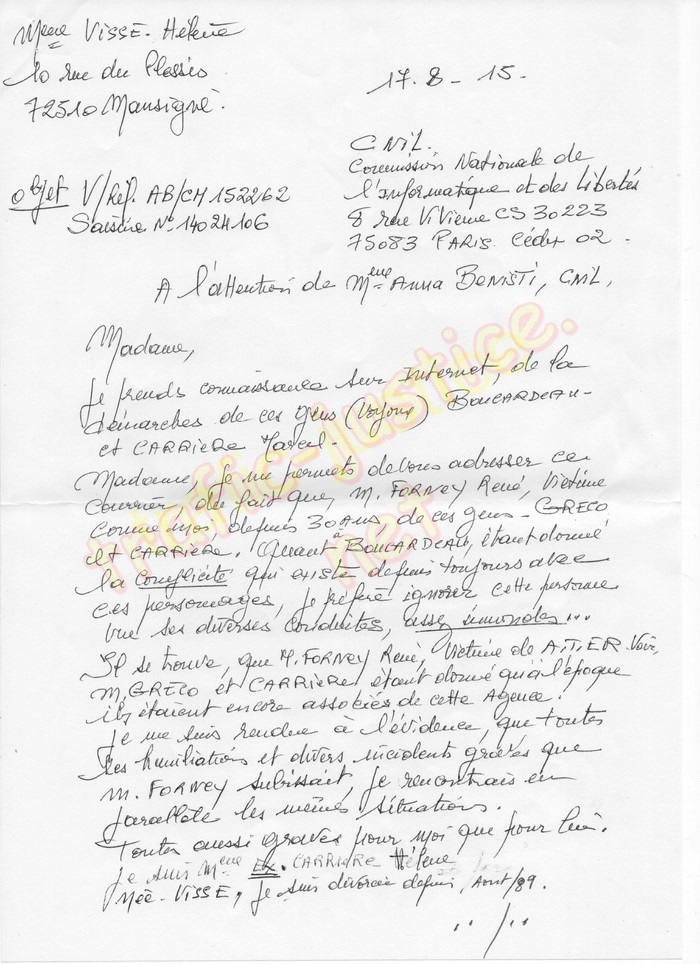 Mme VISSE. Hélène
10 rue du Plessis
72510 Mansigné.
17. 8 - 15.
CNIL.
Commission Nationale de
l'Informatique et des Libertés
8 rue Vivienne CS 30223
75083 PARIS. Cédex 02.
objet V/Réf. AB/CM 152262
Saisine N° 14024106
A l'attention de Mme Anna BENISTI, CNIL.
Madame,
Je prends connaissance sur Internet, de la
démarches de ces gens (Voyous) BOUCARDEAU-
et CARRIERE Marcel.
Madame, je me permets de vous adresser ce
courrier, du fait que, M. FORNEY René, Victime
comme moi, depuis 30 ans, de ces gens - GRECO
et CARRIERE. Quant à BOUCARDEAU, étant donné
la complicité qui existe depuis toujours avec
ces personages, je préfère ignorer cette personne
vue ses diverses conduites, assez immondes...
Il se trouve, que M. FORNEY René, Victime de A.T.E.R. Voir,
M. GRECO et CARRIERE étant donné qu'à l'époque
ils étaient encore associés de cette Agence.
Je me suis rendue à l'évidence, que toutes
les humiliations et divers incidents graves que
M. FORNEY subissait, je rencontrais en
parallèle les mêmes situations.
Toutes aussi graves pour moi que pour lui.
Je suis Mme Ex. CARRIERE Hélène
Née. VISSE, je suis divorcée depuis, Aout/89.
../..
trafic-justice.
net